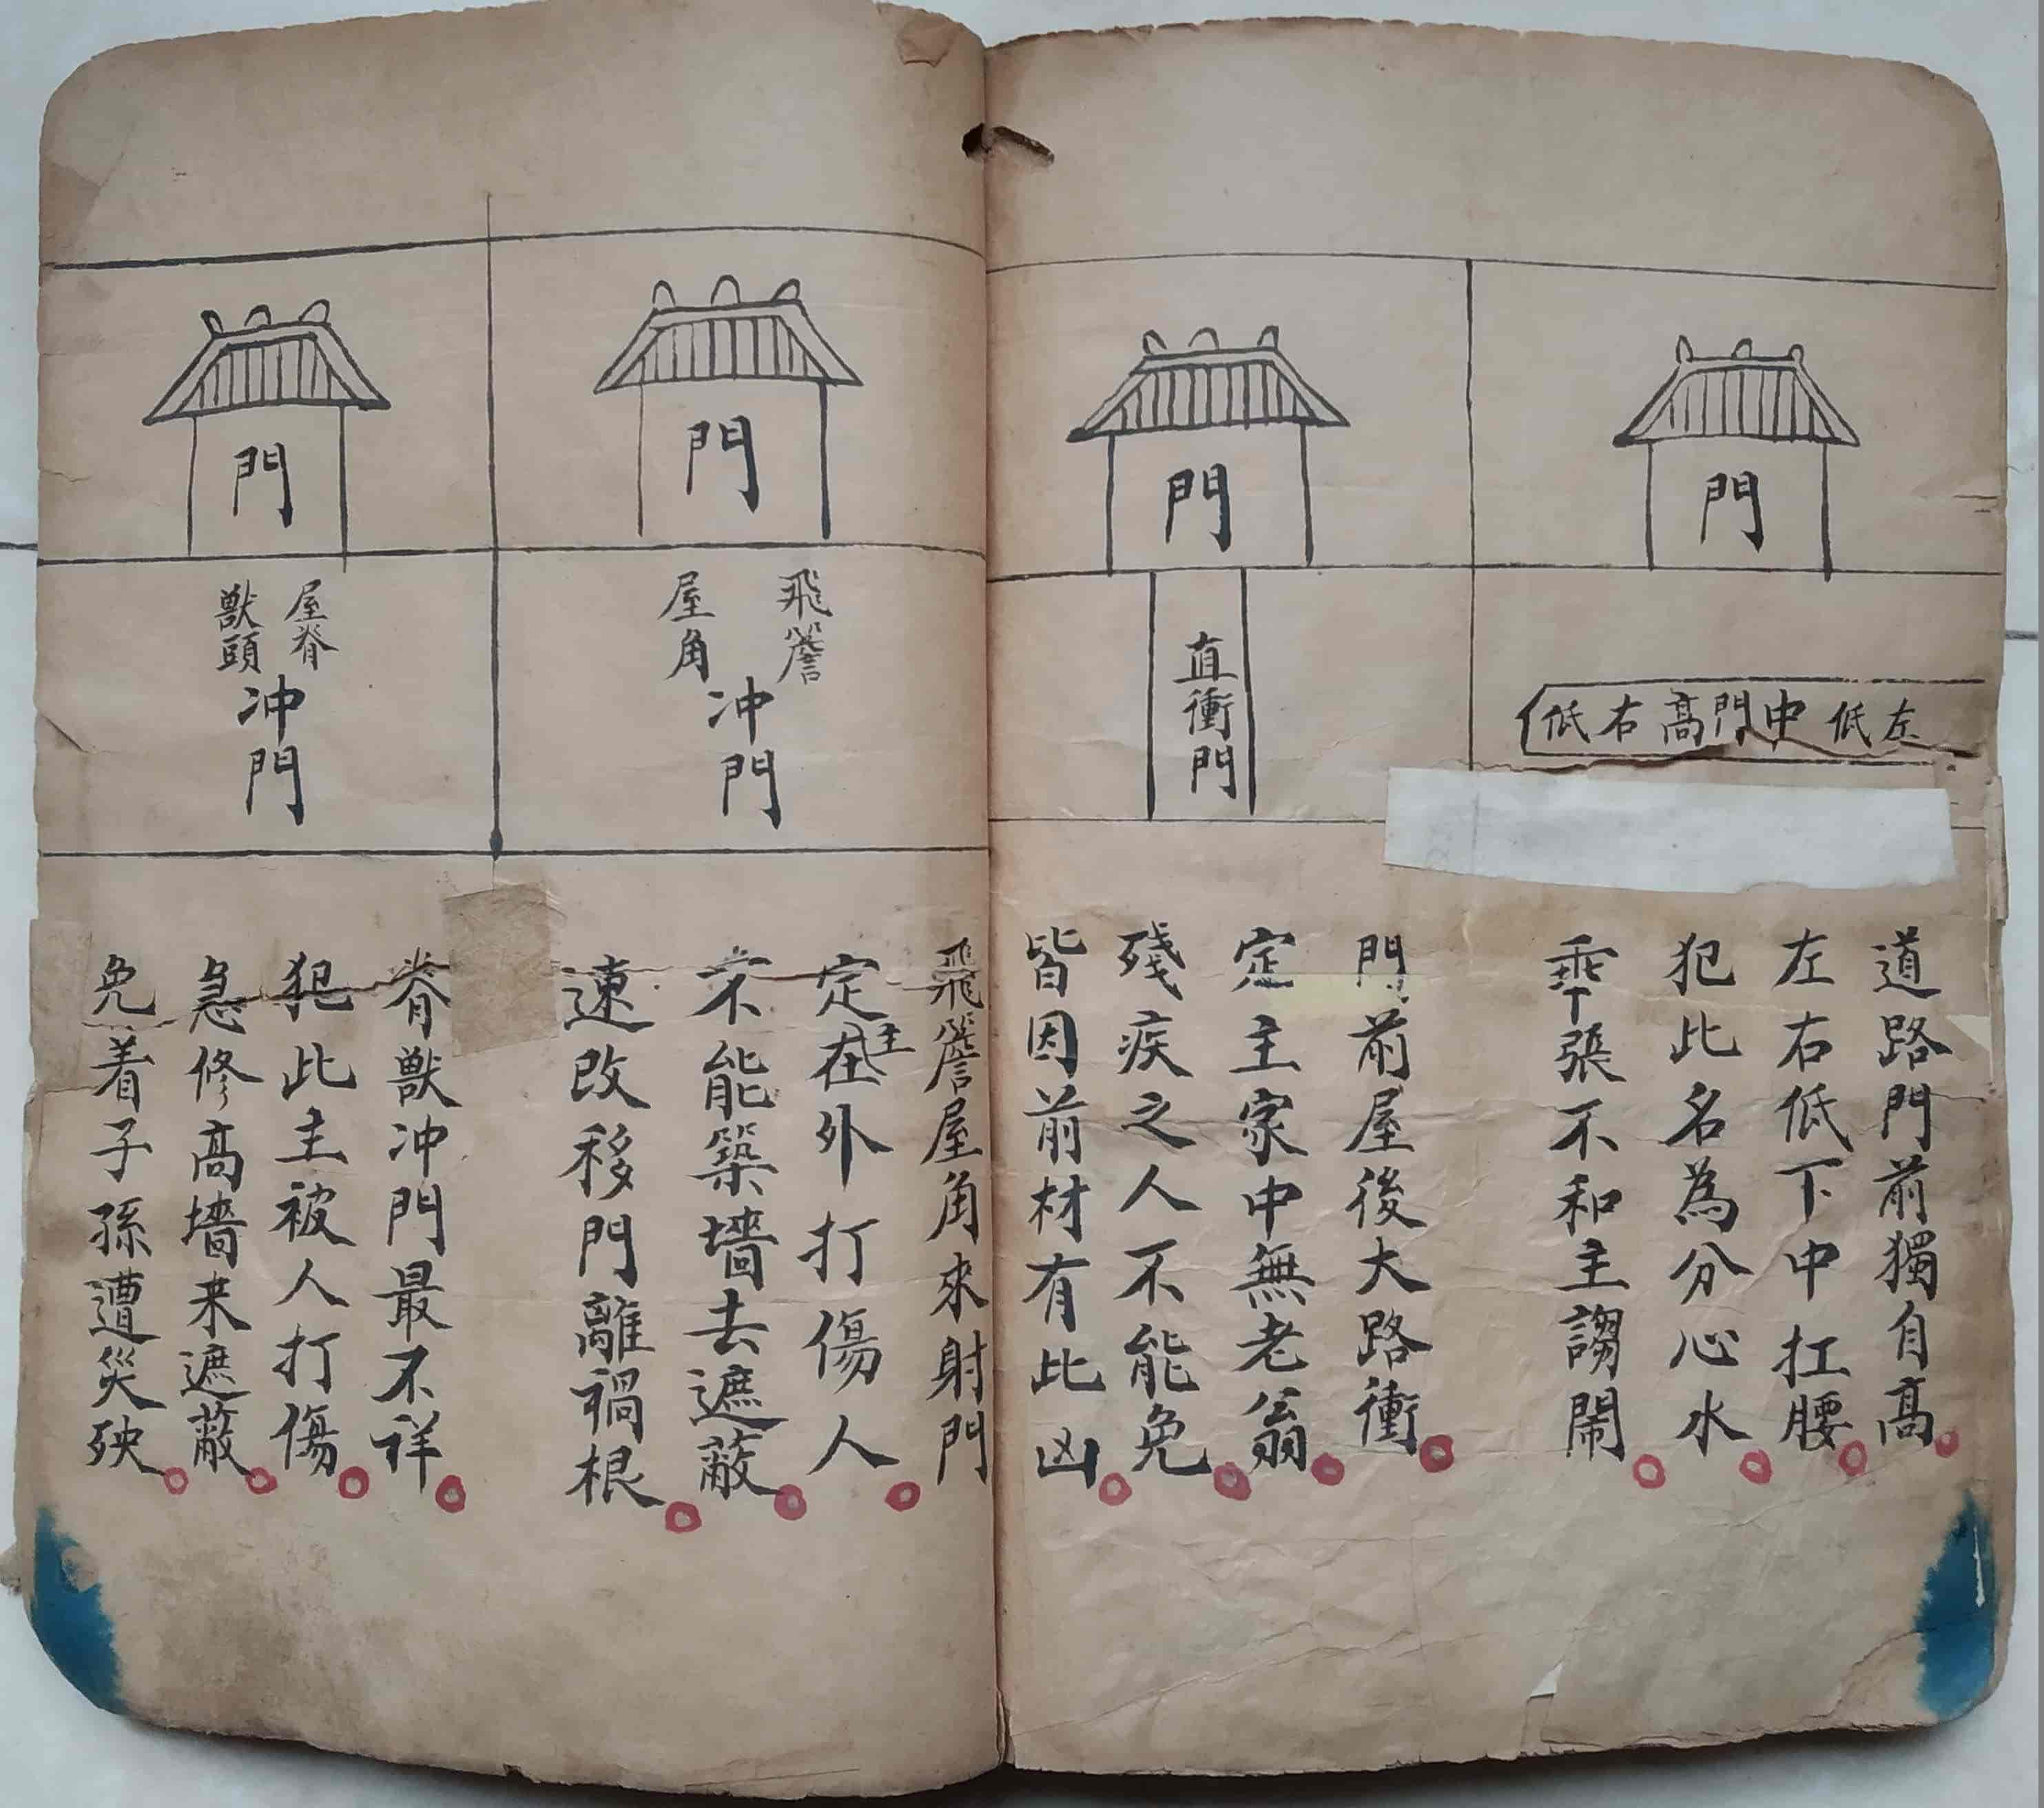 門
左低 中門高 右低
道路門前獨自高
左右低下中扛腰
犯此名為分心水
乖張不和主謅鬧
門
直衝門
門前屋後大路衝
定主家中無老翁
殘疾之人不能免
皆因前材有比凶
門
飛簷
屋角
冲門
飛簷屋角來射門
定主在外打傷人
不能築墻去遮蔽
速改移門離禍根
門
屋脊
獸頭
冲門
脊獸冲門最不祥
犯此主被人打傷
急修高墻来遮蔽
免着子孫遭災殃